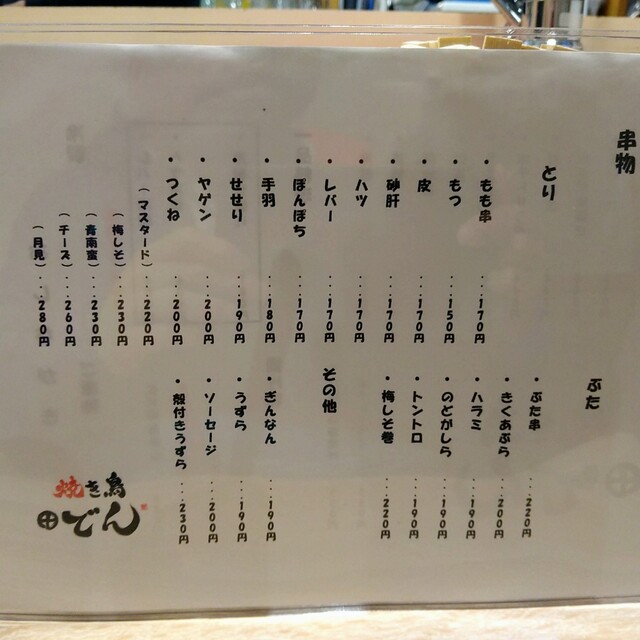 串物
とり
・もも串 ・・・170円
・もつ ・・・150円
・皮 ・・・170円
・砂肝 ・・・170円
・ハツ ・・・170円
・レバー ・・・170円
・ぼんぼち ・・・170円
・手羽 ・・・180円
・せせり ・・・190円
・ヤゲン ・・・200円
・つくね ・・・200円
(マスタード) ・・・220円
(梅しそ) ・・・230円
(青南蛮) ・・・230円
(チーズ) ・・・260円
(月見) ・・・280円
ぶた
・ぶた串 ・・・220円
・きくあぶら ・・・200円
・ハラミ ・・・190円
・のどがしら ・・・190円
・トントロ ・・・190円
・梅しそ巻 ・・・220円
その他
・ぎんなん ・・・190円
・うずら ・・・190円
・ソーセージ ・・・200円
・殻付きうずら ・・・230円
焼き鳥
でん